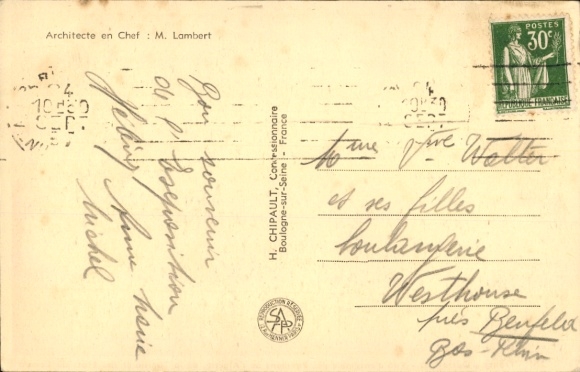 Architecte en Chef : M. Lambert
Bon souvenir
de l'Exposition
Anne Marie
Michel
H. CHIPAULT, Concessionnaire
Boulogne-sur-Seine - France
POSTES
30c
REPUBLIQUE FRANÇAISE
24
10H30
SEPT
Mme Vve Walter
et ses filles
boulangerie
Westhouse
près Benfeld
Bas-Rhin
REPRODUCTION RÉSERVÉE
SAAPP